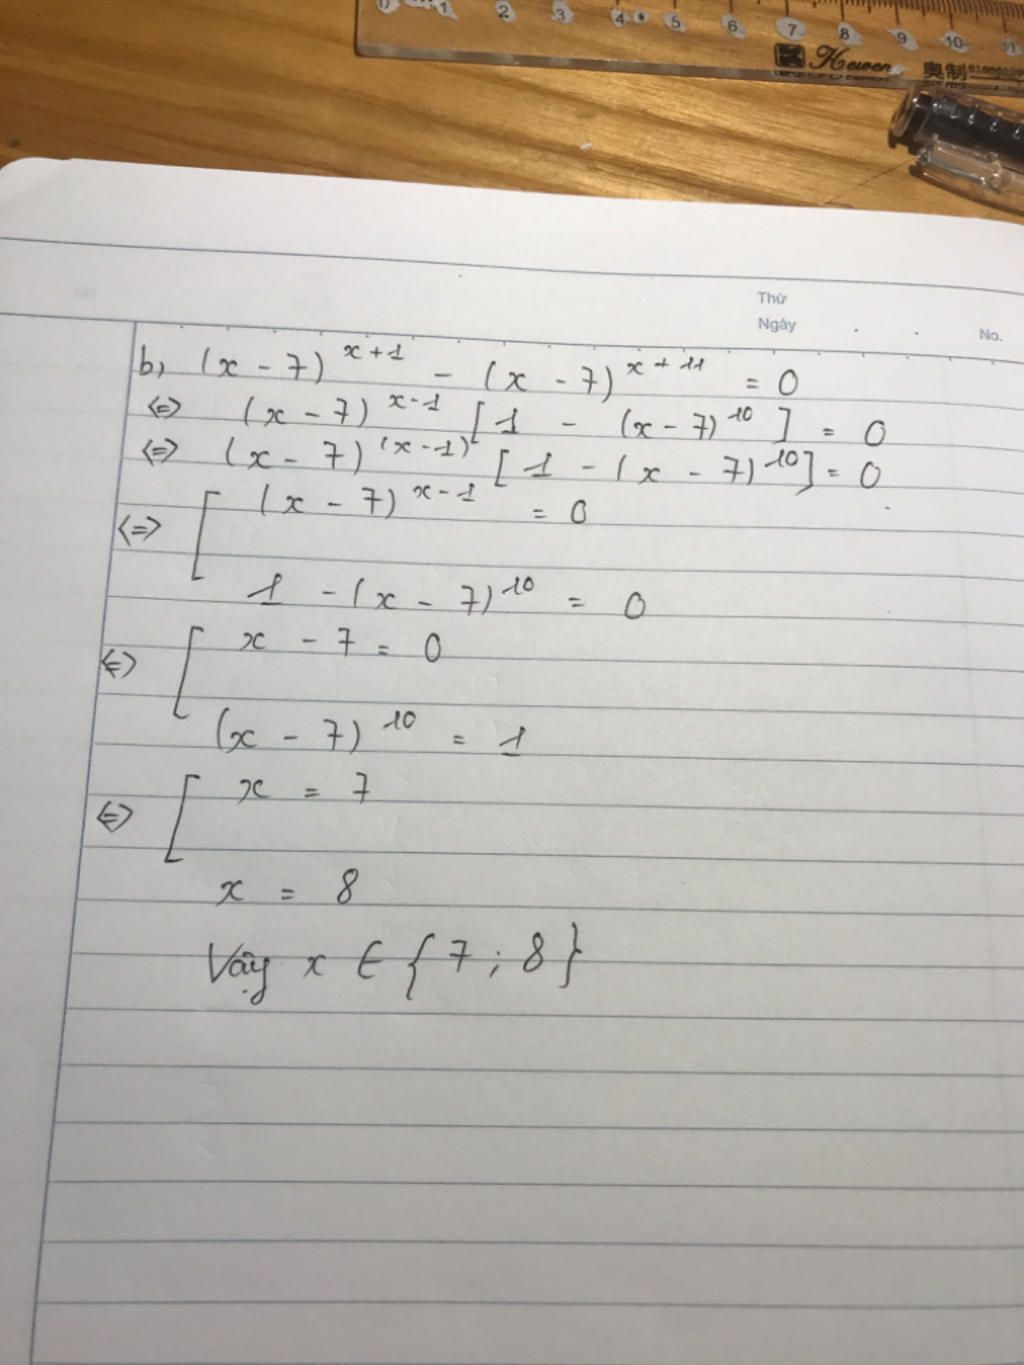 0 1 2 3 4 5 6 7 8 9 10 11
Kewen 奥制
Thứ
Ngày
No.
b, (x - 7)^{x+1} - (x - 7)^{x+11} = 0
<=> (x - 7)^{x-1} [1 - (x - 7)^{10}] = 0
<=> (x - 7)^{(x-1)} [1 - (x - 7)^{10}] = 0
<=> [ (x - 7)^{x-1} = 0
1 - (x - 7)^{10} = 0
<=> [ x - 7 = 0
(x - 7)^{10} = 1
<=> [ x = 7
x = 8
Vậy x ∈ {7 ; 8}